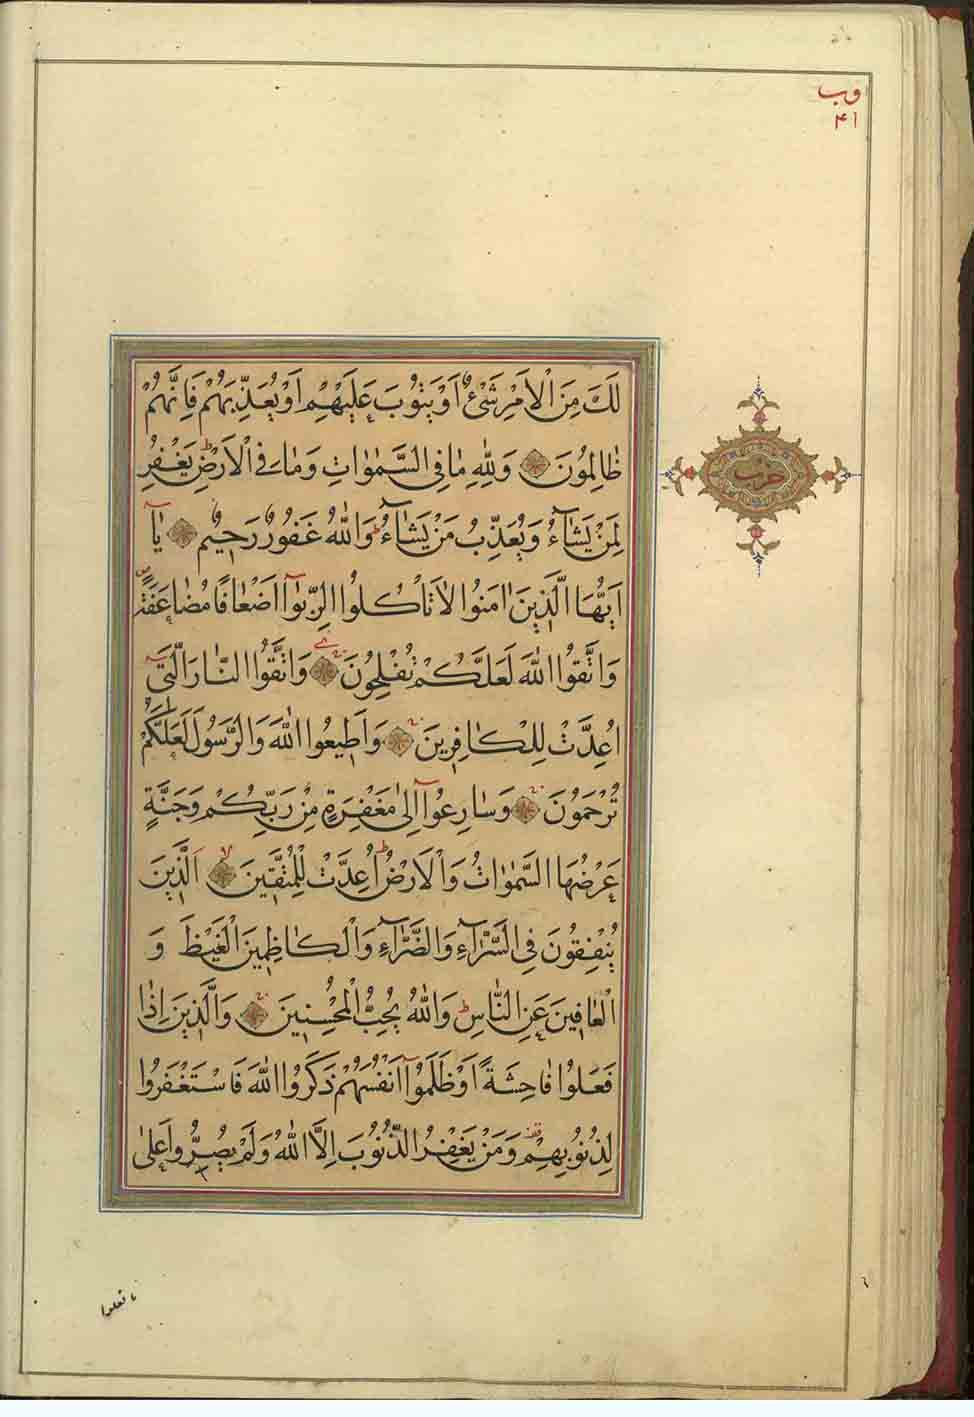 وب
۴۱
حزب
لَكَ مِنَ الْاَمْرِ شَیْءٌ اَوْ یَتُوبَ عَلَیْهِمْ اَوْ یُعَذِّبَهُمْ فَاِنَّهُمْ
ظٰالِمُونَ وَلِلّٰهِ مٰا فِی السَّمٰوٰاتِ وَمٰا فِی الْاَرْضِ ط یَغْفِرُ
لِمَنْ یَشٰآءُ وَیُعَذِّبُ مَنْ یَشٰآءُ ط وَاللّٰهُ غَفُورٌ رَحِیمٌ یٰآ
اَیُّهَا الَّذِینَ اٰمَنُوا لٰا تَاْكُلُوا الرِّبٰوآ اَضْعٰافًا مُضٰاعَفَةً ص
وَاتَّقُوا اللّٰهَ لَعَلَّكُمْ تُفْلِحُونَ وَاتَّقُوا النّٰارَ الَّتِیٓ
اُعِدَّتْ لِلْكٰافِرِینَ وَاَطِیعُوا اللّٰهَ وَالرَّسُولَ لَعَلَّكُمْ
تُرْحَمُونَ وَسٰارِعُوآ اِلیٰ مَغْفِرَةٍ مِنْ رَبِّكُمْ وَجَنَّةٍ
عَرْضُهَا السَّمٰوٰاتُ وَالْاَرْضُ ط اُعِدَّتْ لِلْمُتَّقِینَ لا اَلَّذِینَ
یُنْفِقُونَ فِی السَّرّٰآءِ وَالضَّرّٰآءِ وَالْكٰاظِمِینَ الْغَیْظَ وَ
الْعٰافِینَ عَنِ النّٰاسِ ط وَاللّٰهُ یُحِبُّ الْمُحْسِنِینَ وَالَّذِینَ اِذٰا
فَعَلُوا فٰاحِشَةً اَوْ ظَلَمُوآ اَنْفُسَهُمْ ذَكَرُوا اللّٰهَ فَاسْتَغْفَرُوا
لِذُنُوبِهِمْ قف وَمَنْ یَغْفِرُ الذُّنُوبَ اِلَّا اللّٰهُ وَلَمْ یُصِرُّوا عَلیٰ